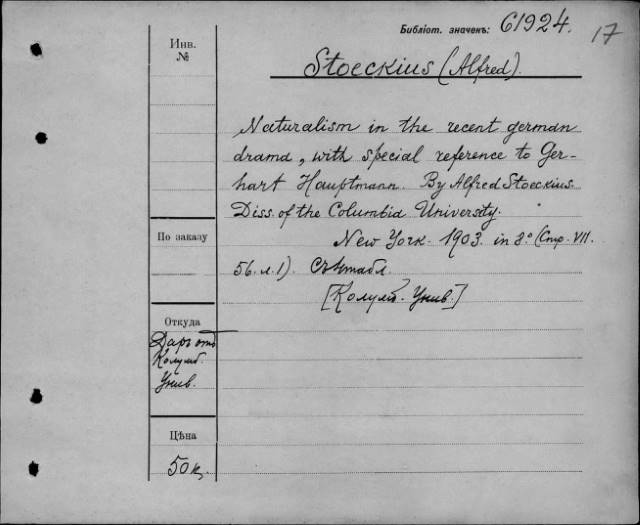 Библіот. значекъ: 61924. 17
Инв.
№
Stoeckius (Alfred).
Naturalism in the recent german
drama, with special reference to Ger-
hart Hauptmann. By Alfred Stoeckius.
Diss. of the Columbia University.
New York. 1903. in 8.º (Стр. VII.
56. л. 1). Съ табл.
[Колумб. Унив.]
По заказу
Откуда
Даръ отъ
Колумб.
Унив.
Цѣна
50 к.